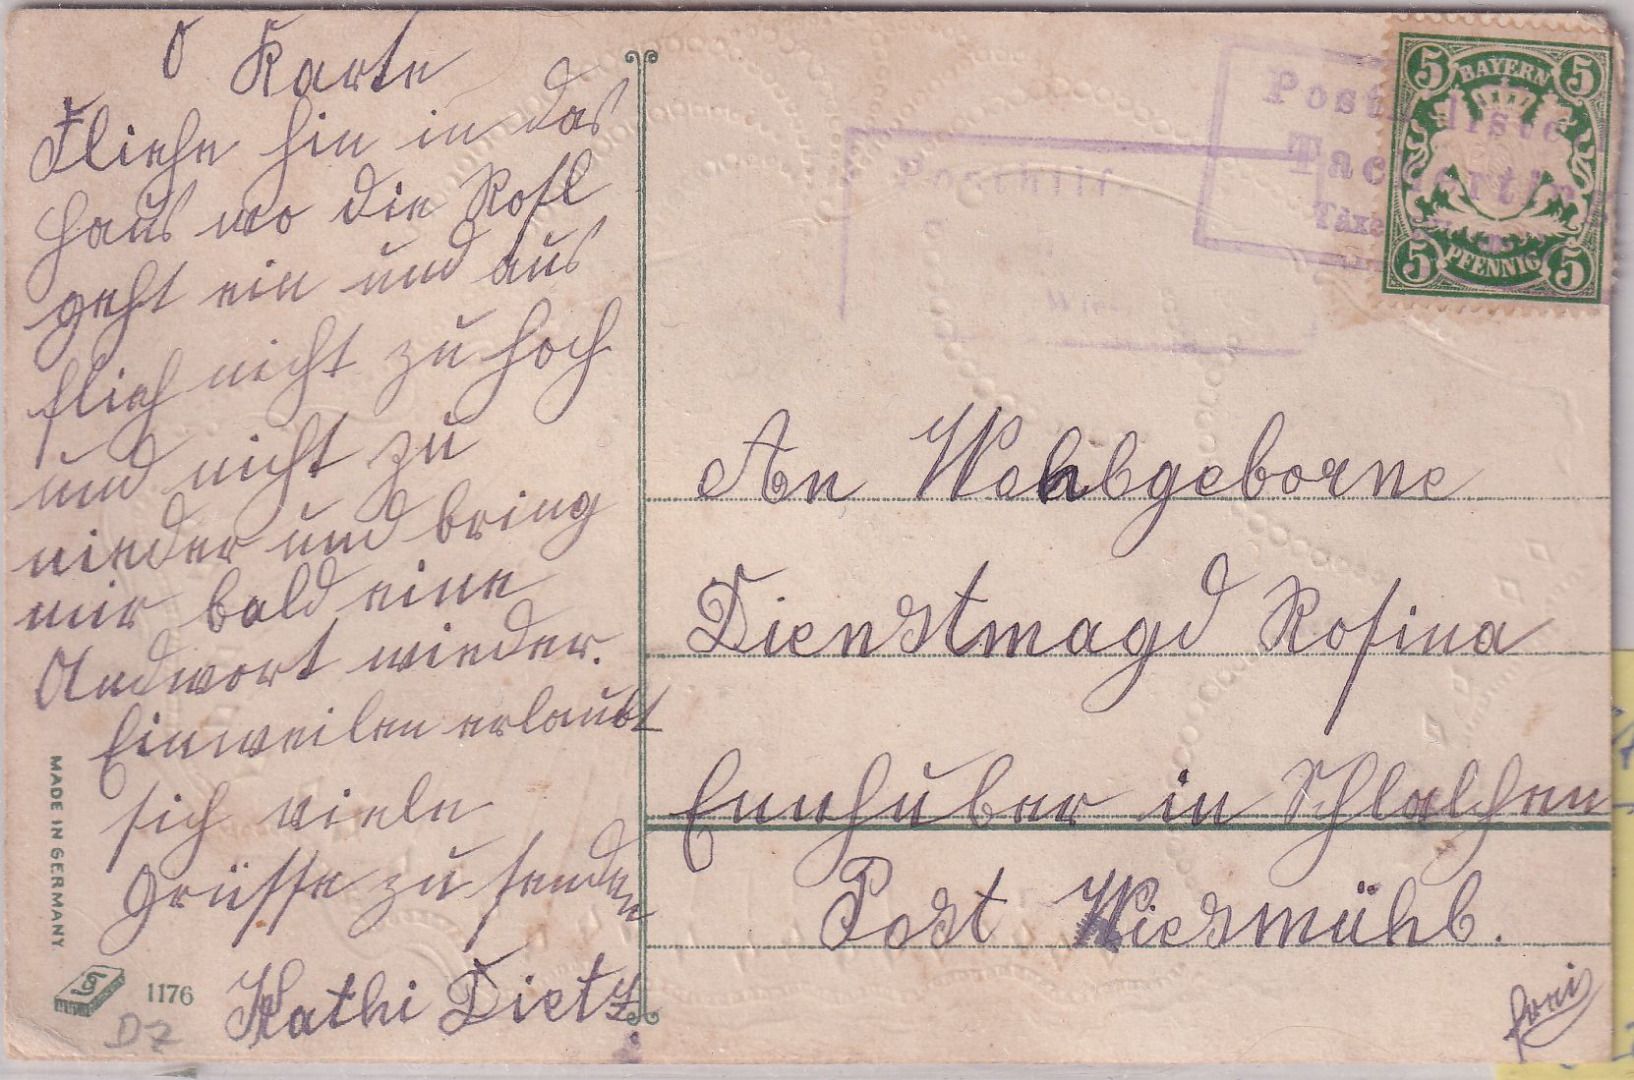 O Karte
Fliehe hin in das
Haus wo die Rosl
geht ein und aus
flieh nicht zu hoch
und nicht zu
nieder und bring
mir bald eine
Andwort wieder.
Einweilen erlaubt
sich viele
Grüsse zu senden
Kathi Dietz.
MADE IN GERMANY
1176
DZ
Posthilf
Wies
Posthilfste
Tacherting
Taxe
5 BAYERN 5
5 PFENNIG 5
An Wohlgeborne
Dienstmagd Rosina
Ennhuber in Schlalchen
Post Wiesmühl.
frei